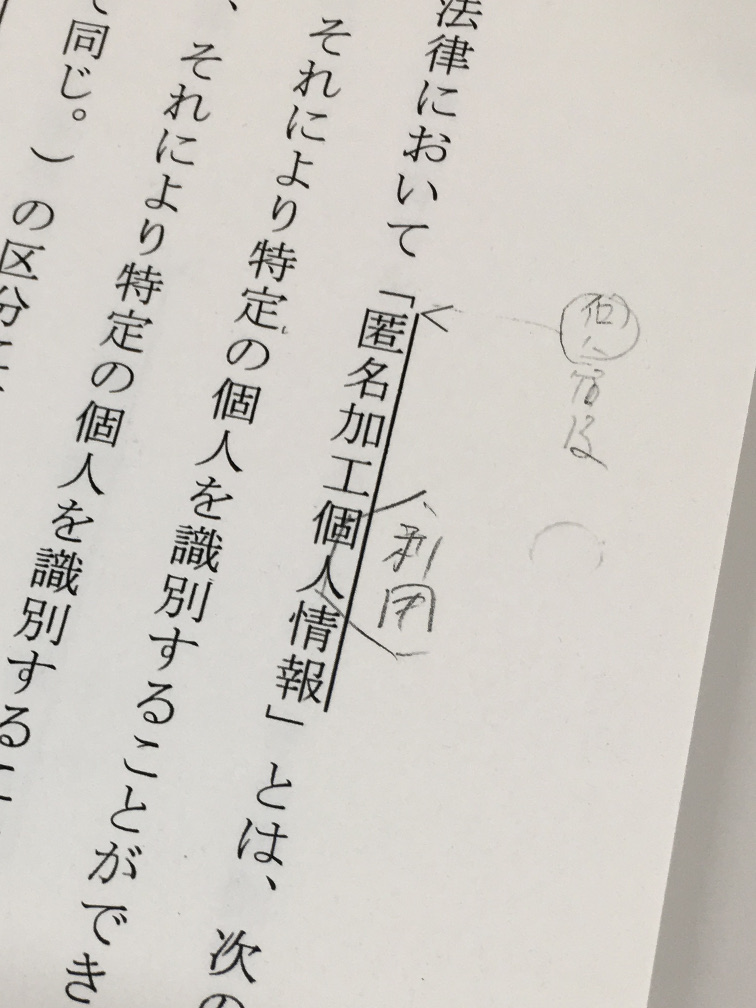 法律において「匿名加工個人情報」とは、次の
利用
それにより特定の個人を識別することができ
、それにより特定の個人を識別するこ
同じ。）の区分に